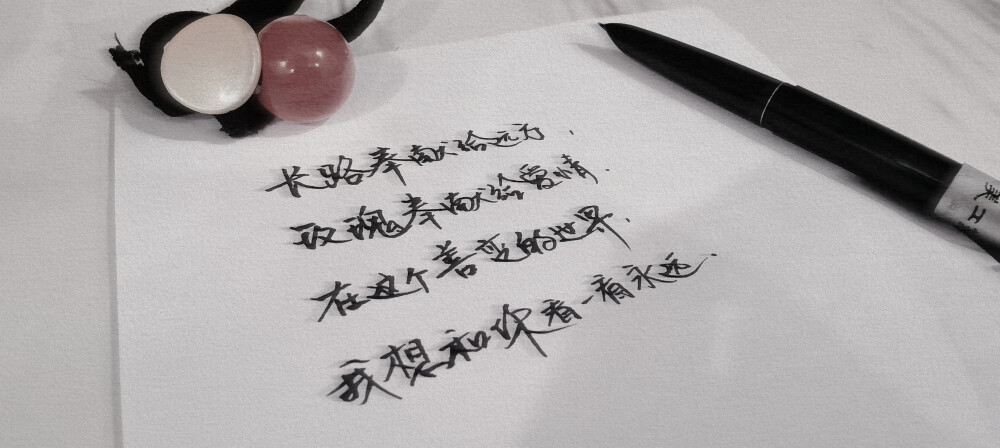 长路奉献给远方、
玫瑰奉献给爱情.
在这个善变的世界.
我想和你看一看永远.
美工